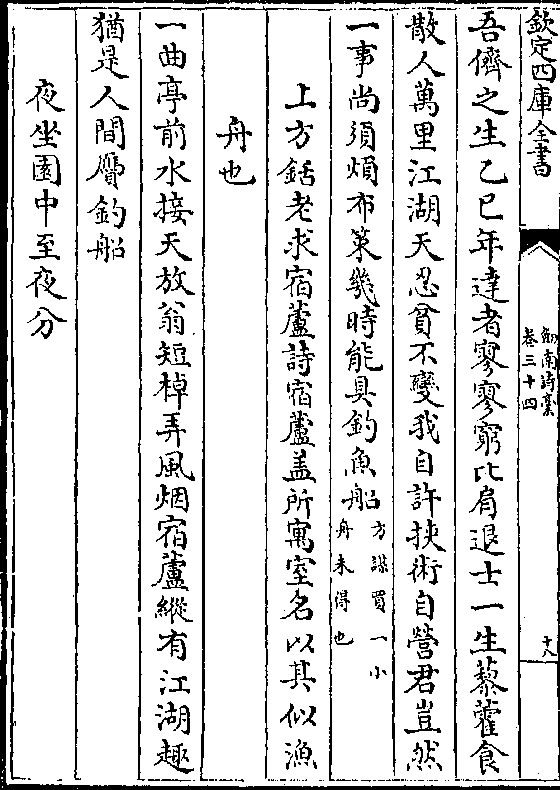 欽定四庫全書
劍南詩藁
卷三十四
十八
吾儕之生乙巳年達者寥寥窮比肩退士一生藜藿食
散人萬里江湖天忍貧不變我自許挾術自營君豈然
一事尚須煩布策幾時能具釣魚船方謀買一小
舟未得也
上方銛老求宿蘆詩宿蘆盖所寓室名以其似漁
舟也
一曲亭前水接天放翁短棹弄風烟宿蘆縱有江湖趣
猶是人間贗釣船
夜坐園中至夜分